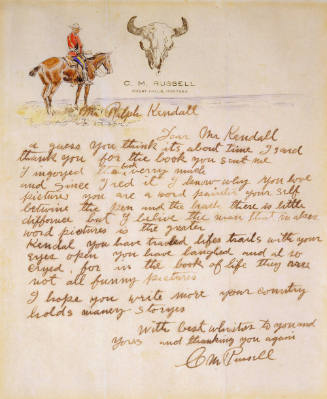 C. M. RUSSELL
GREAT FALLS, MONTANA
Mr Ralph Kendall
Dear Mr Kendall
I guess you think its about time I said
thank you for the book you sent me
I injoyed them verry much
and since I red it I know why you love
pictures you are a word painter your self
betwine the pen and the brush there is little
diffornce but I belive the man that makes
word pictures is the greater
Kendal you have traled lifes trails with your
eyes open you have laughed and al so
cryed for in the book of life they are
not all funny pictures
I hope you write more your country
holds maney storyes
With best whishes to you and
yors and thanking you again
C M Russell